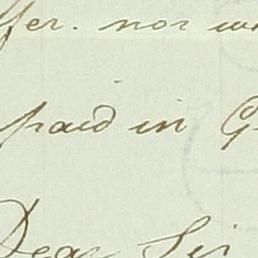 fer. nor
paid in G
Dear Sir